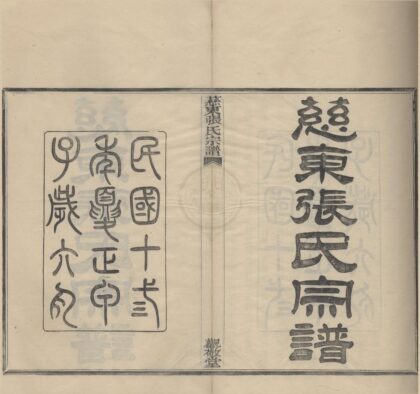 慈東張氏宗譜
慈東張氏宗譜
觀敬堂
民國十弎
年夏正甲
子歲六月